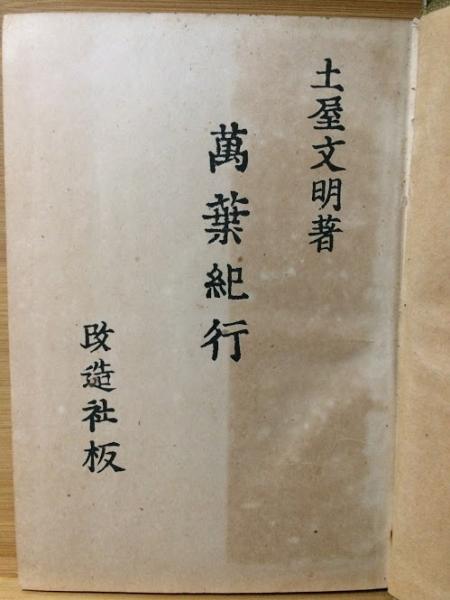 土屋文明著
萬葉紀行
改造社板